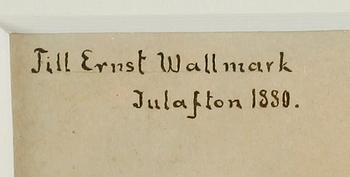 Till Ernst Wallmark
Julafton 1880.